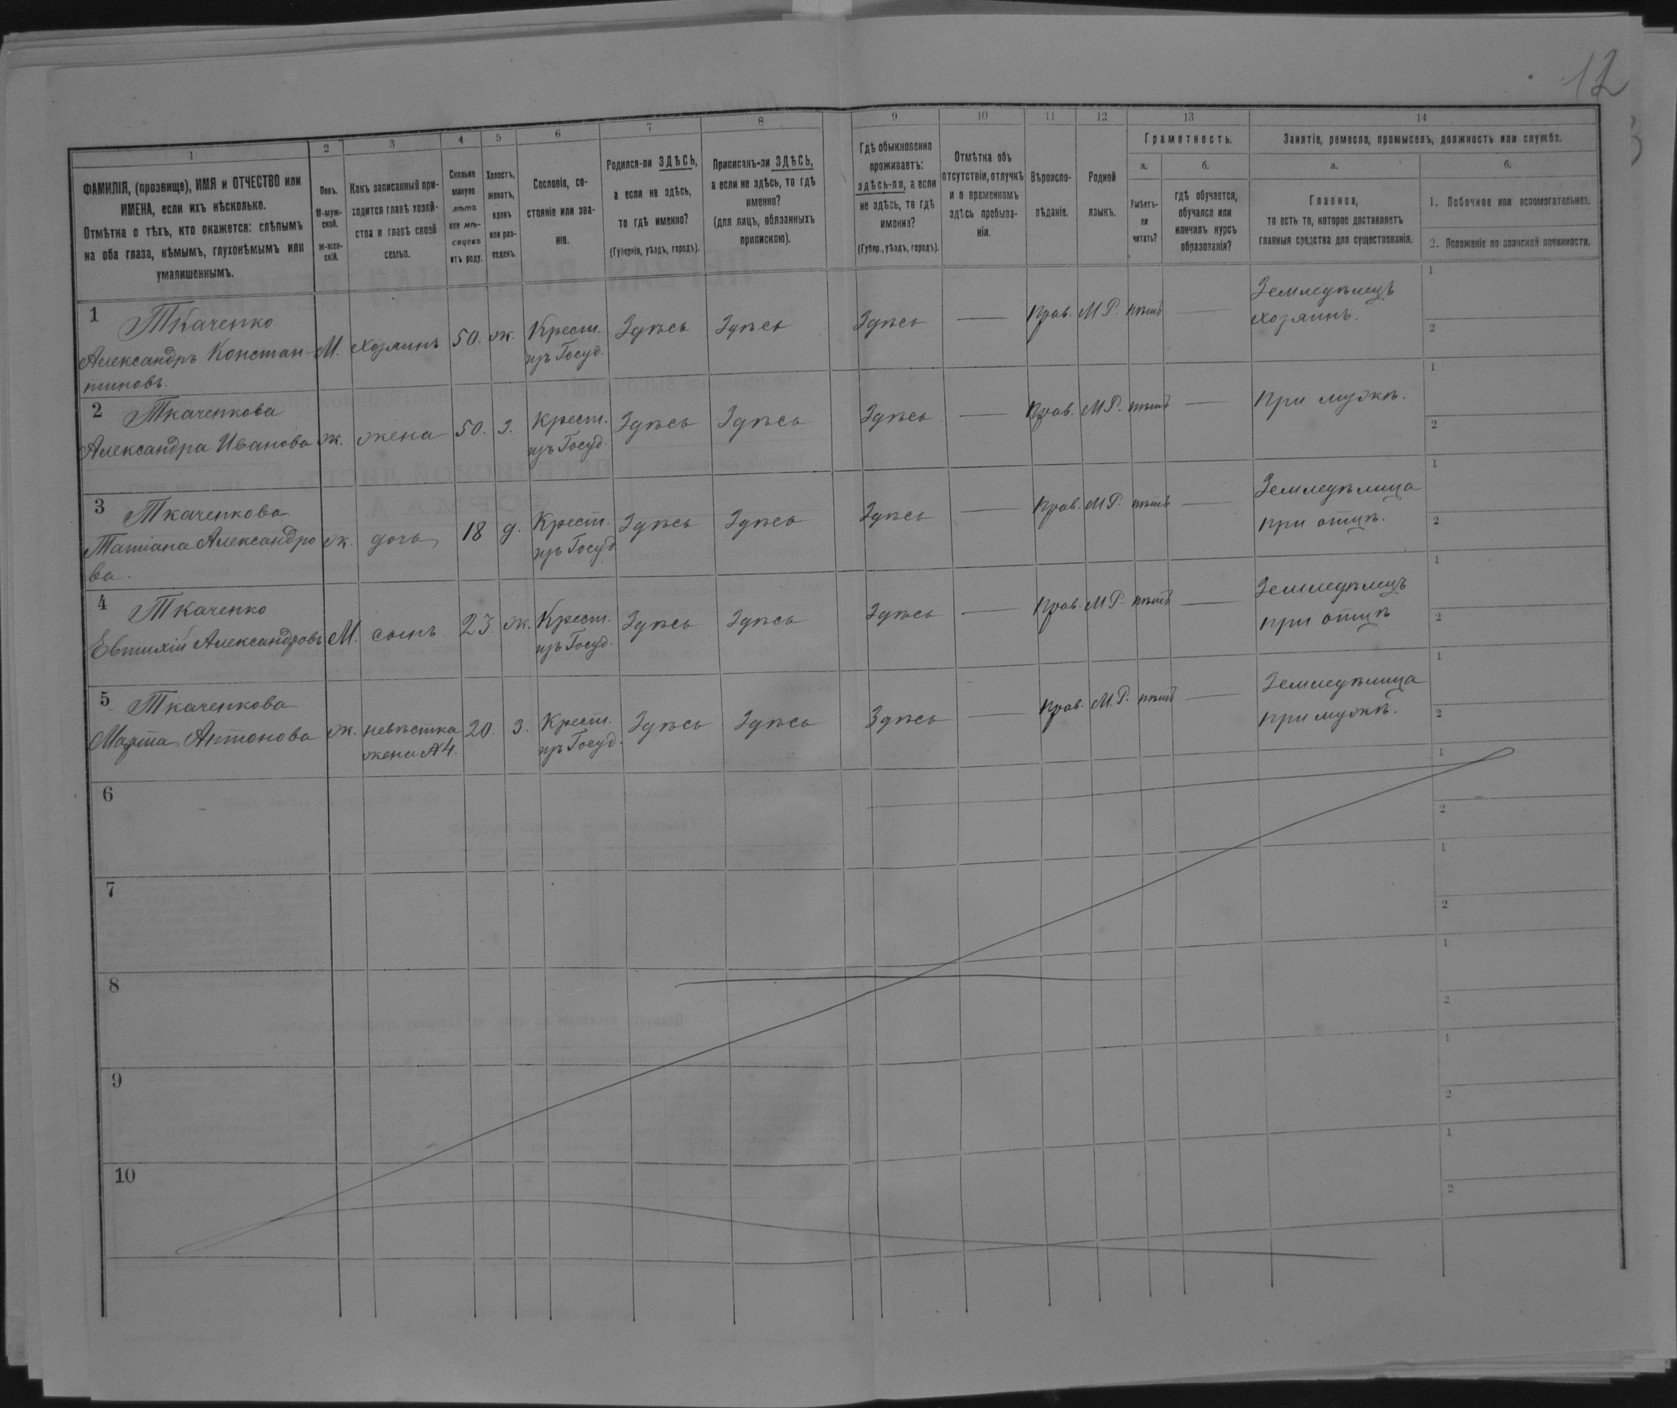 12
1
ФАМИЛІЯ, (прозвище), ИМЯ и ОТЧЕСТВО или
ИМЕНА, если ихъ нѣсколько.
Отмѣтка о тѣхъ, кто окажется: слѣпымъ
на оба глаза, нѣмымъ, глухонѣмымъ или
умалишеннымъ.
2
Полъ.
М-муж-
ской.
Ж-жен-
скій.
3
Какъ записанный при-
ходится главѣ хозяй-
ства и главѣ своей
семьи.
4
Сколько
минуло
лѣтъ
или мѣ-
сяцевъ
отъ роду.
5
Холостъ,
женатъ,
вдовъ
или раз-
веденъ.
6
Сословіе, со-
стояніе или зва-
ніе.
7
Родился-ли ЗДѢСЬ,
а если не здѣсь,
то гдѣ именно?
(Губернія, уѣздъ, городъ).
8
Приписанъ-ли ЗДѢСЬ,
а если не здѣсь, то гдѣ
именно?
(для лицъ, обязанныхъ
припискою).
9
Гдѣ обыкновенно
проживаетъ:
здѣсь-ли, а если
не здѣсь, то гдѣ
именно?
(Губер., уѣздъ, городъ).
10
Отмѣтка объ
отсутствіи, отлучкѣ
и о временномъ
здѣсь пребыва-
ніи.
11
Вѣроиспо-
вѣданіе.
12
Родной
языкъ.
13
Грамотность.
а.
Умѣетъ-
ли
читать?
б.
гдѣ обучается,
обучался или
кончилъ курсъ
образованія?
14
Занятіе, ремесло, промыселъ, должность или служба.
а.
Главное,
то есть то, которое доставляетъ
главныя средства для существованія.
б.
1. Побочное или вспомогательное.
2. Положеніе по воинской повинности.
1 Ткаченко
Александръ Констан-
тиновъ.
М. хозяинъ 50. ж. Крест.
изъ Госуд.
Здѣсь Здѣсь Здѣсь — Прав. М.Р. нѣтъ —
Земледѣлецъ
хозяинъ.
1
2
2 Ткаченкова
Александра Иванова
ж. жена 50. З. Крест.
изъ Госуд.
Здѣсь Здѣсь Здѣсь — Прав. М.Р. нѣтъ —
При мужѣ.
1
2
3 Ткаченкова
Татіана Александро
ва.
ж. дочь 18 д. Крест.
изъ Госуд
Здѣсь Здѣсь Здѣсь — Прав. М.Р. нѣтъ —
Земледѣлица
при отцѣ.
1
2
4 Ткаченко
Евтихій Александровъ
М. сынъ 23. ж. Крест.
изъ Госуд.
Здѣсь Здѣсь Здѣсь — Прав. М.Р. нѣтъ —
Земледѣлецъ
при отцѣ
1
2
5 Ткаченкова
Марѳа Антонова
ж. невѣстка
жена №4.
20. З. Крест.
изъ Госуд.
Здѣсь Здѣсь Здѣсь — Прав. М.Р. нѣтъ —
Земледѣлица
при мужѣ.
1
2
6
1
2
7
1
2
8
1
2
9
1
2
10
1
2